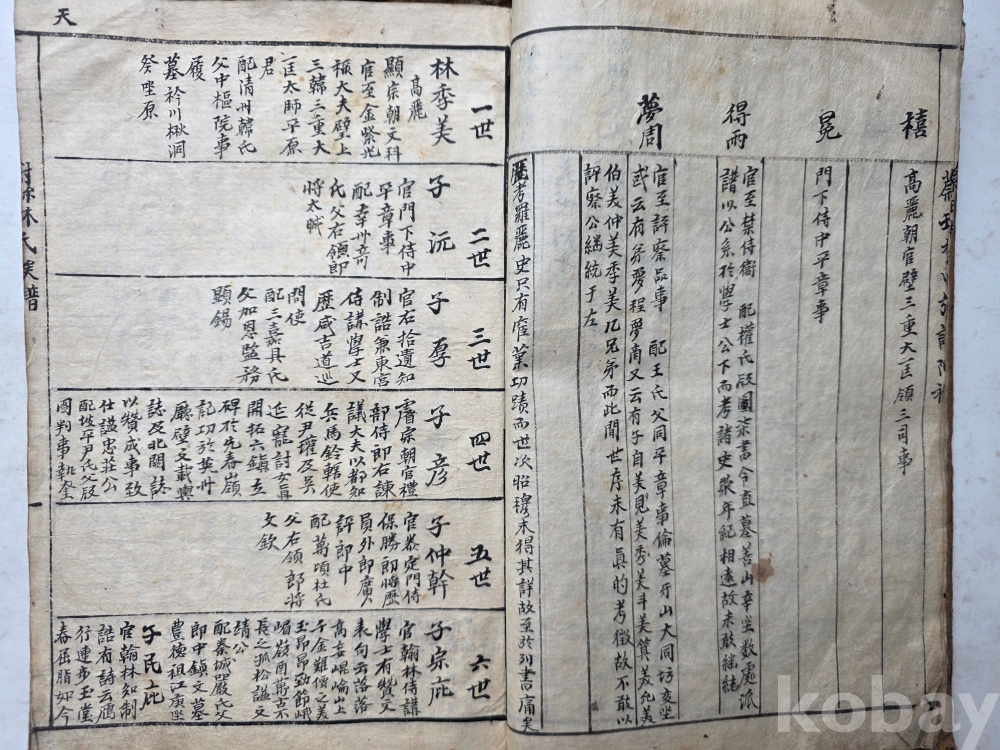 禧
高麗朝官壁三重大匡領三司事
冕
門下侍中平章事
得雨
官至禁侍衛 配權氏父國柒書令直墓善山辛坐數處派
譜以公系於學士公下而考諸史蹟年紀相遠故未敢繼統
夢周
官至評察品事 配王氏父同平章事倫墓牙山大同坊亥坐
或云有弟夢程夢南又云有子自美見美秀美斗美箕美允美
伯美仲美季美九兄弟而此間世序未有眞的考徵故不敢以
評察公繼統于左
歷考羅麗史只有官業功蹟而世次昭穆未得其詳故至於列書痛矣
天
一世
林季美
高麗
顯宗朝文科
官至金紫光
祿大夫壁上
三韓三重大
匡太師平原
君
配清州韓氏
父中樞院事
履
墓衿川楸洞
癸坐原
二世
子沅
官門下侍中
平章事
配幸州奇
氏父右領郎
將太
三世
子厚
官右拾遺知
制誥兼東宮
侍講學士又
歷咸吉道巡
問使
配三嘉具氏
父加恩監務
顯錫
四世
子彦
睿宗朝官禮
部侍郎右諫
議大夫以都知
兵馬鈐轄使
從尹瓘及吳
延寵討女眞
開拓六鎭立
碑於先春嶺
記功於英州
廳壁文載輿
誌及北關誌
以贊成事致
仕諡忠莊公
配坡平尹氏父
圖判事執奎
五世
子仲幹
官泰定門侍
保勝郎將歷
員外郎廣
評郎中
配萬頃杜氏
父右領郎將
文欽
六世
子宗庇
官翰林侍講
學士有贊文
表句云落落
高安崐崘山上
千金難價之美
玉昻昻勁節峨
嵋巖畔萬古不
長之孤松諡文
靖公
配秦城嚴氏父
郎中鎭文墓
豊德祖江庚坐
子民庇
官翰林知制
誥有詩云鴈
行連步玉堂
春屈指如今